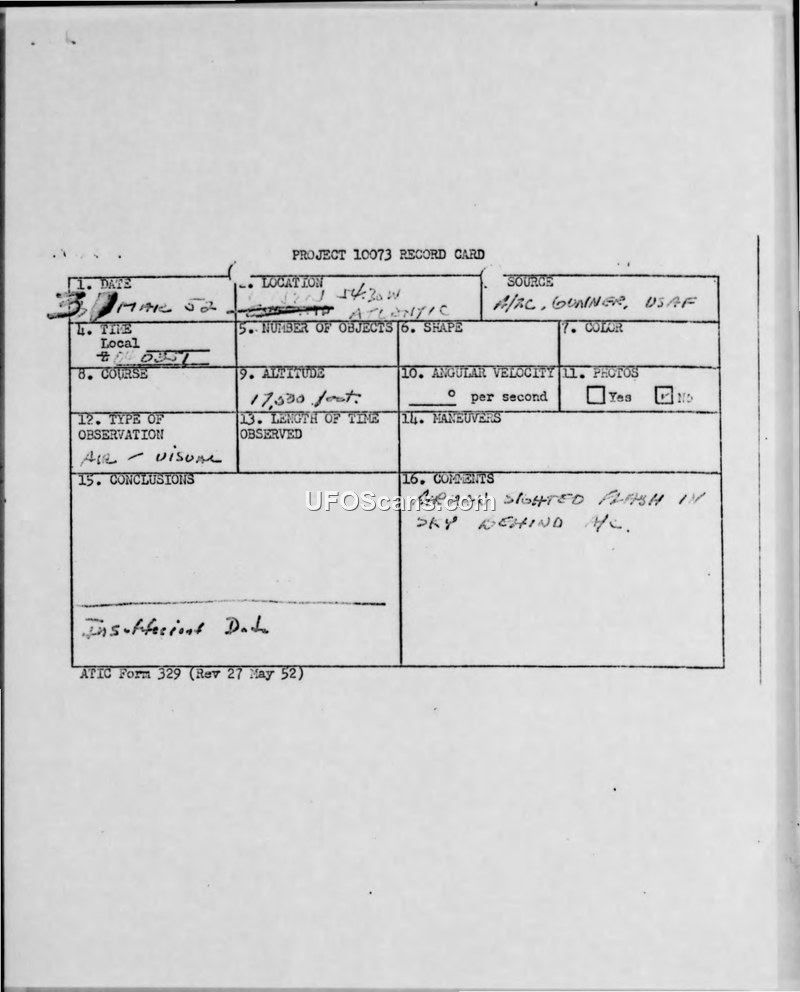 PROJECT 10073 RECORD CARD
1. DATE
MAR 52
2. LOCATION
5430W
ATLANTIC
SOURCE
A/2C, GUNNER, USAF
4. TIME
Local
0351
5. NUMBER OF OBJECTS
6. SHAPE
7. COLOR
8. COURSE
9. ALTITUDE
17,000 feet
10. ANGULAR VELOCITY
° per second
11. PHOTOS
Yes No
12. TYPE OF
OBSERVATION
AIR - VISUAL
13. LENGTH OF TIME
OBSERVED
14. MANEUVERS
15. CONCLUSIONS
Insufficient Data
16. COMMENTS
SIGHTED FLASH IN
SKY BEHIND A/C.
UFOScans.com
ATIC Form 329 (Rev 27 May 52)